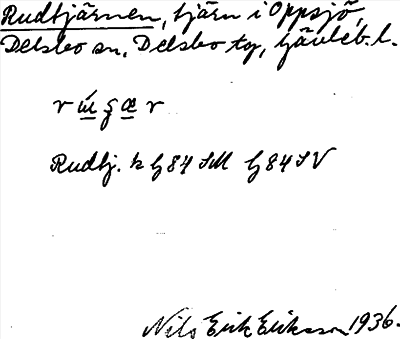 Rudtjärnen, tjärn i Oppsjö,
Delsbo sn, Delsbo tg, Gävleb. l.
Rudtj. k G 84 SM G 84 SV
Nils Erik Eriksson 1936.